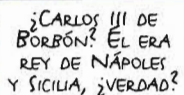 ¿CARLOS III DE
BORBÓN? ÉL ERA
REY DE NÁPOLES
Y SICILIA, ¿VERDAD?